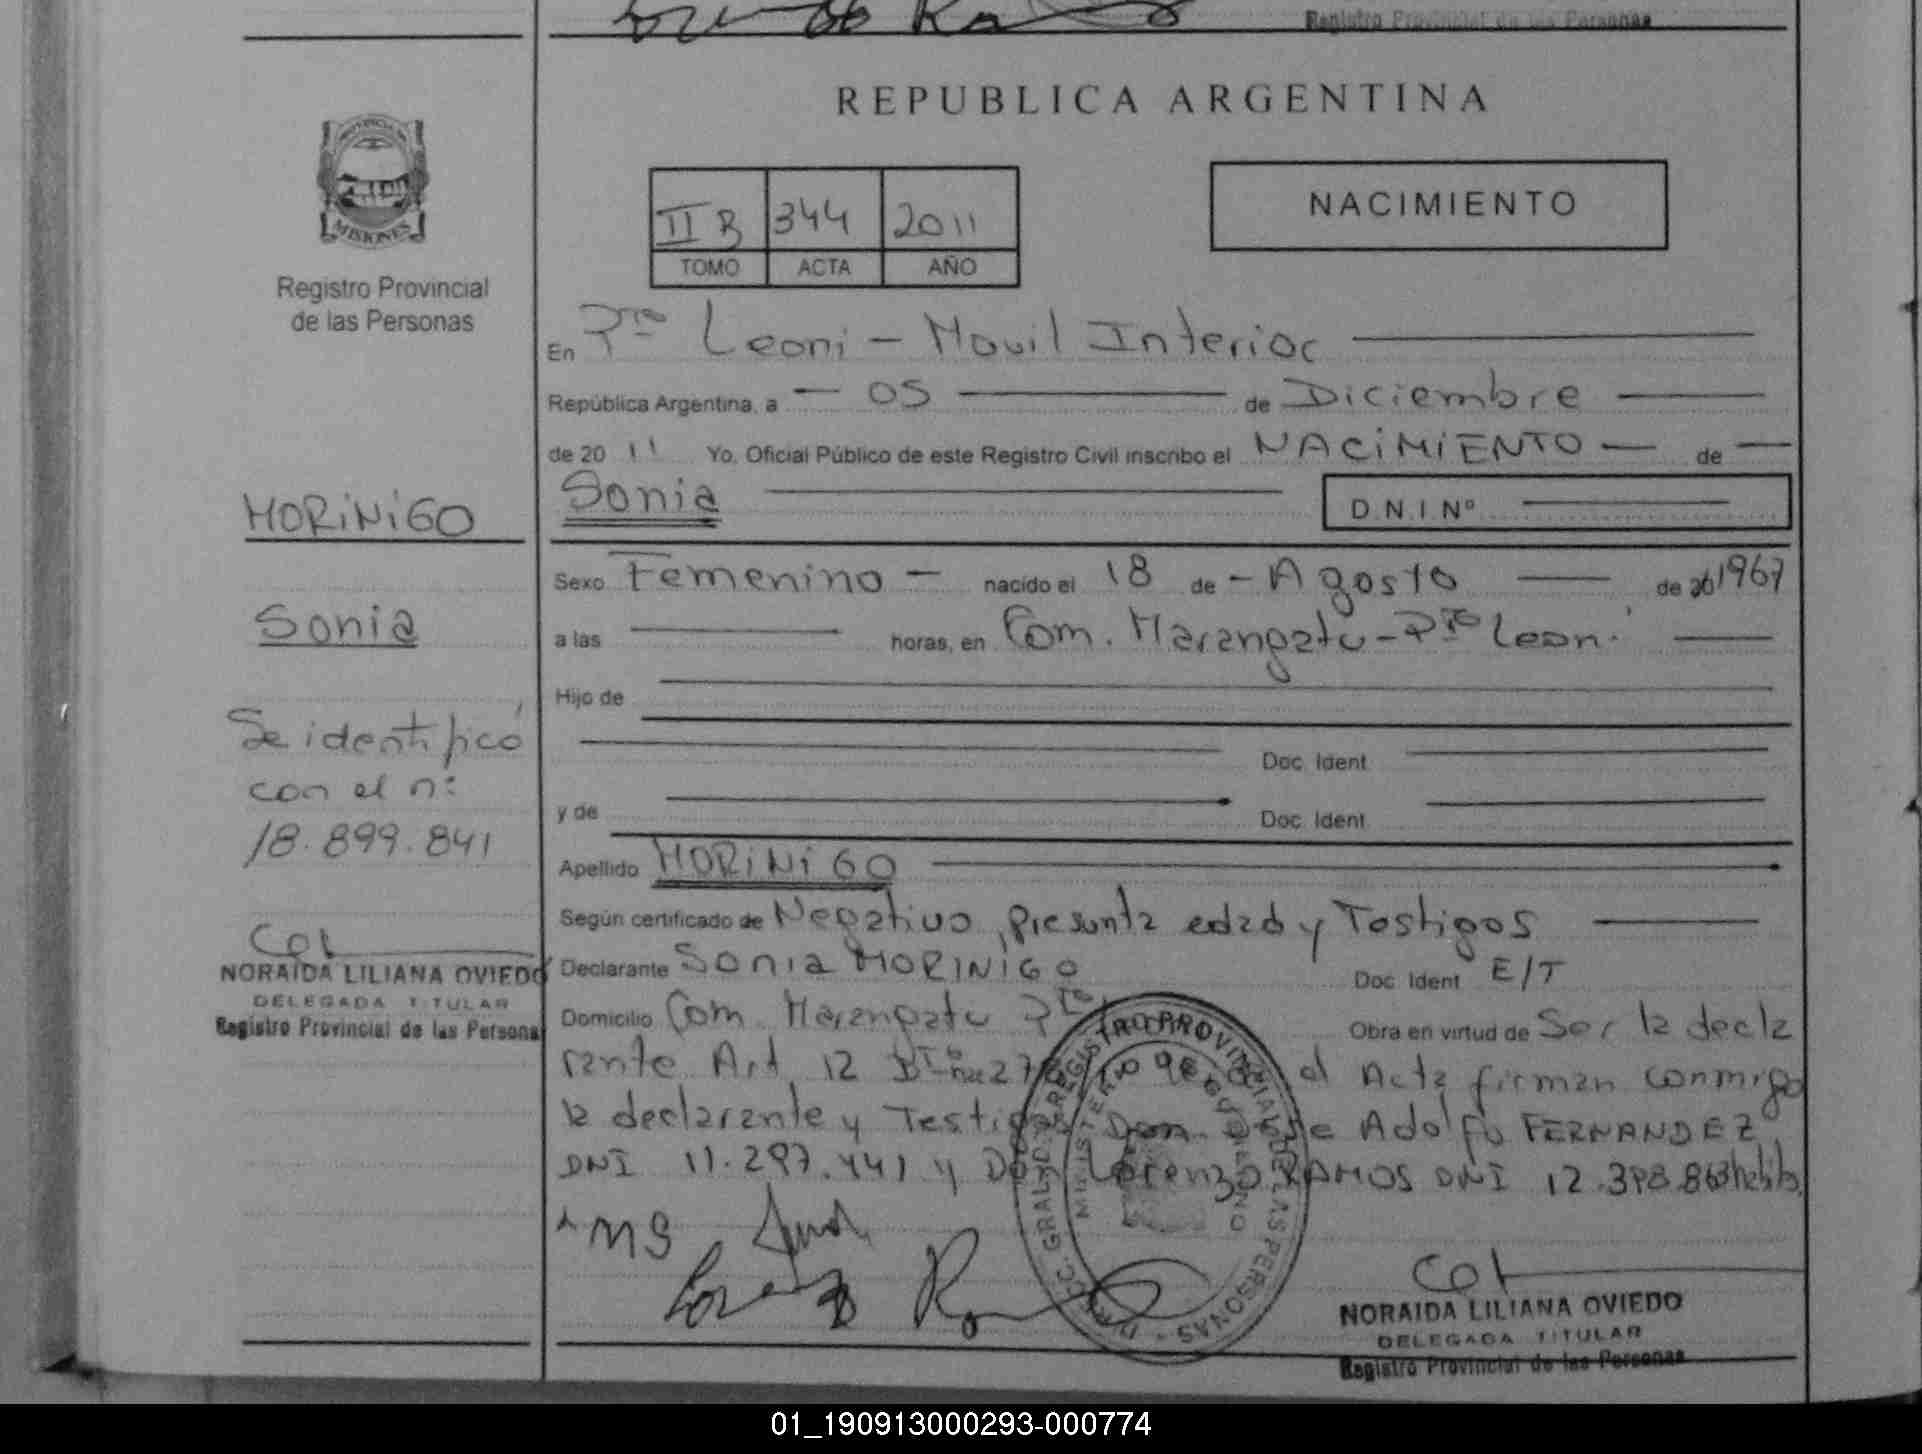 Registro Provincial de las Personas
REPUBLICA ARGENTINA
PROVINCIA DE
MISIONES
Registro Provincial
de las Personas
II B 344 2011
TOMO ACTA AÑO
NACIMIENTO
En Pto Leoni - Movil Interior
República Argentina, a - 05 de Diciembre
de 2011 Yo, Oficial Público de este Registro Civil inscribo el NACIMIENTO - de
Sonia D.N.I.Nº
MORINIGO
Sonia
Se identificó
con el nº
18.899.841
NORAIDA LILIANA OVIEDO
DELEGADA TITULAR
Registro Provincial de las Persona
Sexo Femenino - nacido el 18 de - Agosto de 1967
a las horas, en Com. Marangatu - Pto Leoni
Hijo de
Doc. Ident
y de Doc. Ident
Apellido MORINIGO
Según certificado de Negativo, presunta edad y Testigos
Declarante Sonia MORINIGO Doc. Ident E/T
Domicilio Com. Marangatu Pto Obra en virtud de Ser la decla
rante Art. 12 el Acta firman conmigo
la declarante y Testigos Don Adolfo FERNANDEZ
DNI 11.297.441 y Don Lorenzo RAMOS DNI 12.398.863
Lorenzo
DIRECC. GRAL. DE REGISTRO PROVINCIAL DE LAS PERSONAS
MINISTERIO DE GOBIERNO
NORAIDA LILIANA OVIEDO
DELEGADA TITULAR
Registro Provincial de las Personas
01_190913000293-000774